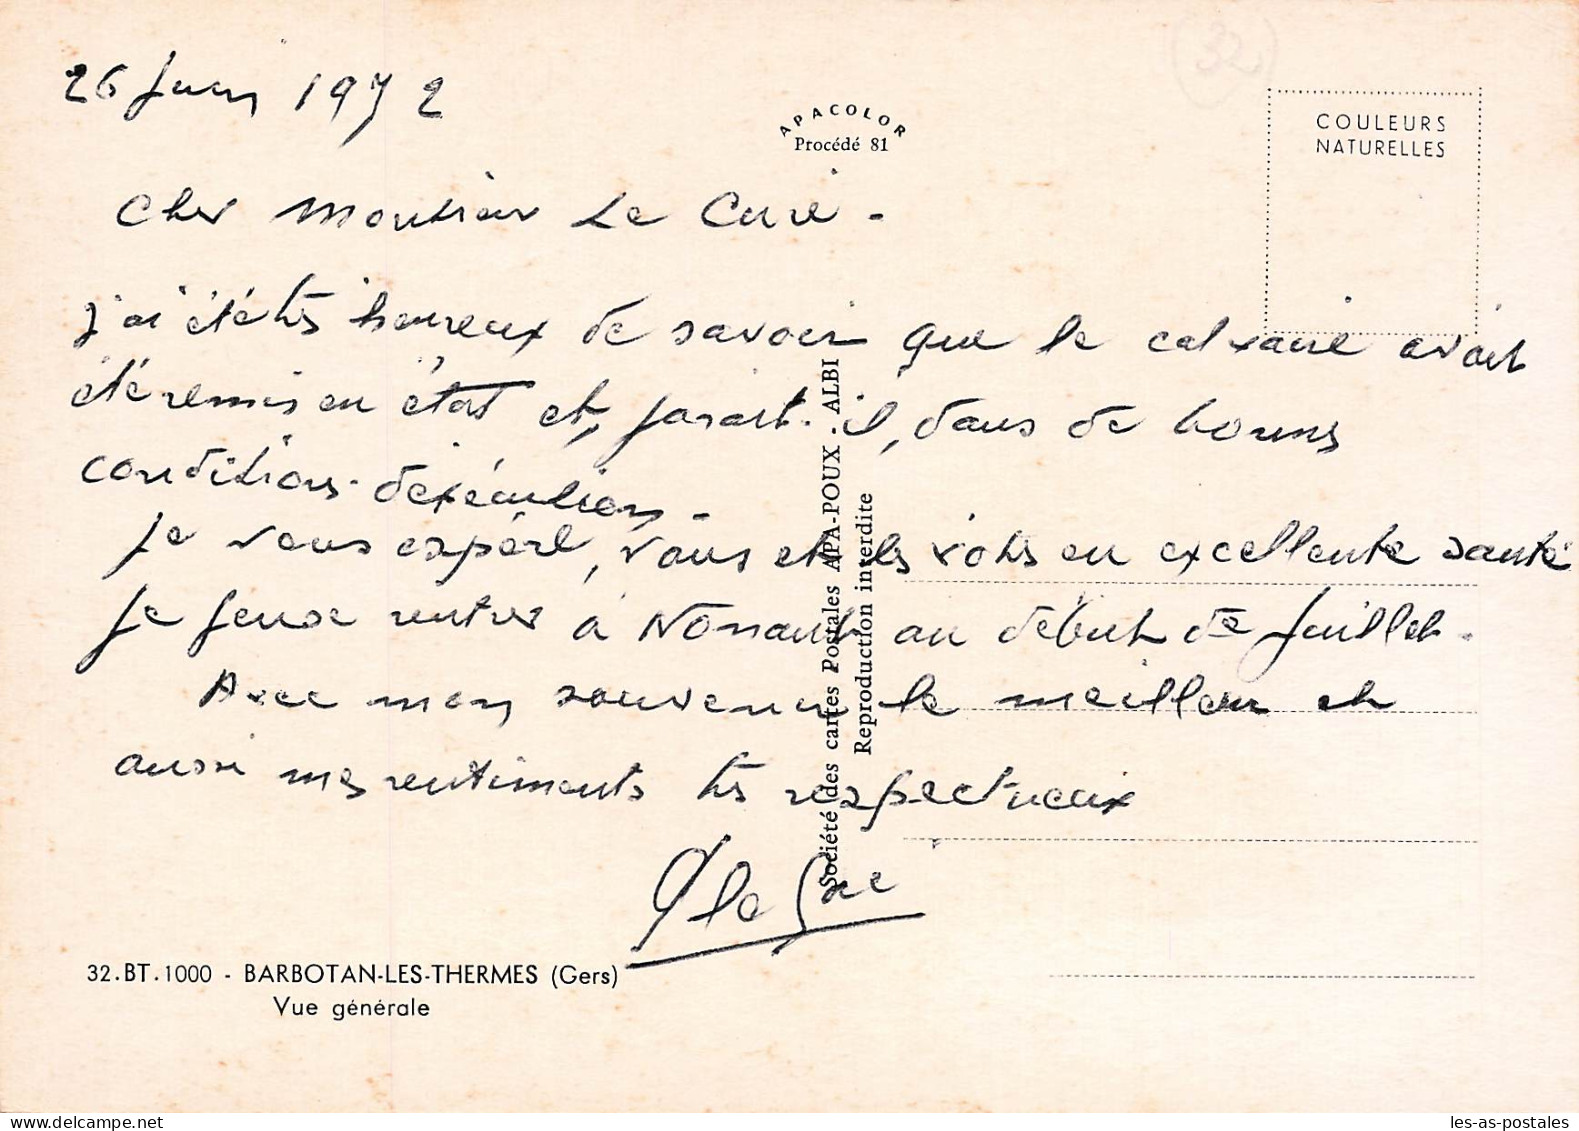 32
26 Juin 1972
APACOLOR
Procédé 81
COULEURS
NATURELLES
Cher Monsieur Le Curé -
j'ai été très heureux de savoir que le calvaire avait
été remis en état et, parait-il, dans de bonnes
conditions d'exécution -
Je vous espère, vous et les vôtres en excellente santé
Je pense rentrer à Nonant au début de Juillet.
Avec mon souvenir le meilleur et
aussi mes sentiments très respectueux
Société des cartes Postales APA-POUX - ALBI
Reproduction interdite
32.BT.1000 - BARBOTAN-LES-THERMES (Gers)
Vue générale
les-as-postales